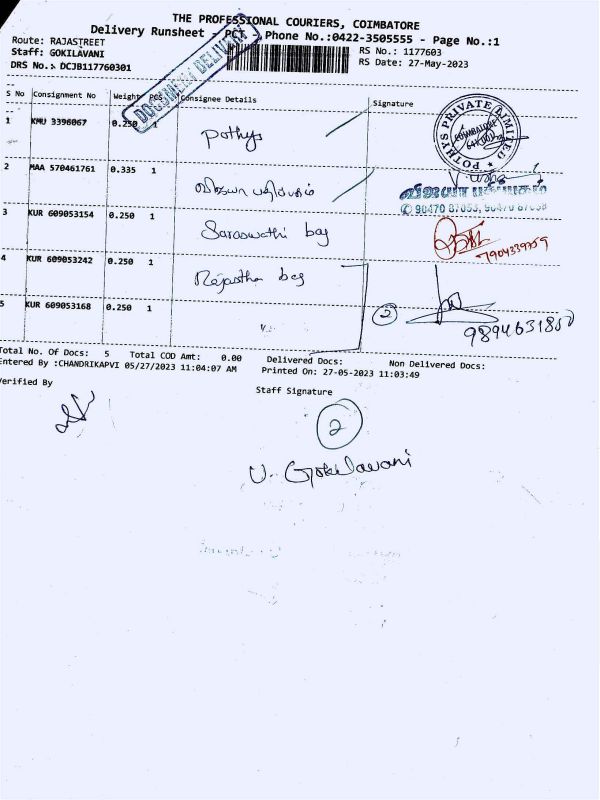 THE PROFESSIONAL COURIERS, COIMBATORE
Delivery Runsheet - PCT - Phone No.:0422-3505555 - Page No.:1
Route: RAJASTREET
RS No.: 1177603
Staff: GOKILAVANI
RS Date: 27-May-2023
DRS No.: DCJB117760301
DOCUMENT DELIVERY
S No Consignment No Weight PCS Consignee Details Signature
1 KMU 3396067 0.250 1 Pothys
POTHYS PRIVATE LIMITED
COIMBATORE
2 MAA 570461761 0.335 1 விஜயா பதிப்பகம்
விஜயா பதிப்பகம்
✆ 90470 87053,
3 KUR 609053154 0.250 1 Saraswathi bag
4 KUR 609053242 0.250 1 Rajasthan bag
5 KUR 609053168 0.250 1
2
Total No. Of Docs: 5 Total COD Amt: 0.00 Delivered Docs: Non Delivered Docs:
Entered By :CHANDRIKAPVI 05/27/2023 11:04:07 AM Printed On: 27-05-2023 11:03:49
Verified By
Staff Signature
2
V. Gokilavani